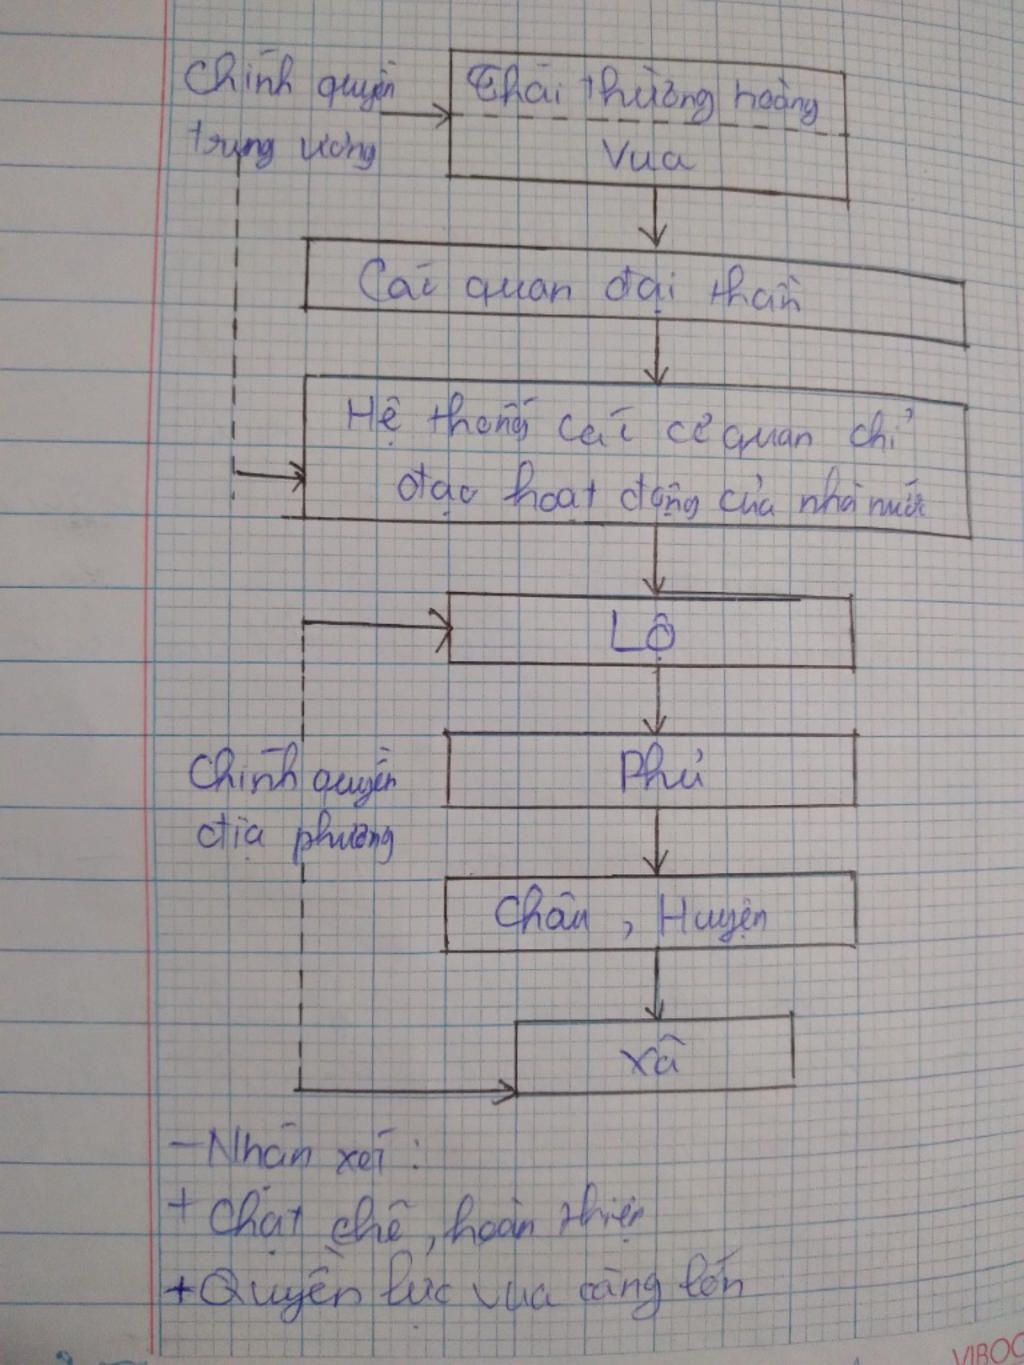 Chính quyền
trung ương
Thái thượng hoàng
Vua
Các quan đại thần
Hệ thống các cơ quan chỉ
đạo hoạt động của nhà nước
Lộ
Phủ
Chính quyền
địa phương
Châu, Huyện
Xã
- Nhận xét:
+ Chặt chẽ, hoàn thiện
+ Quyền lực vua càng lớn
VIBOO